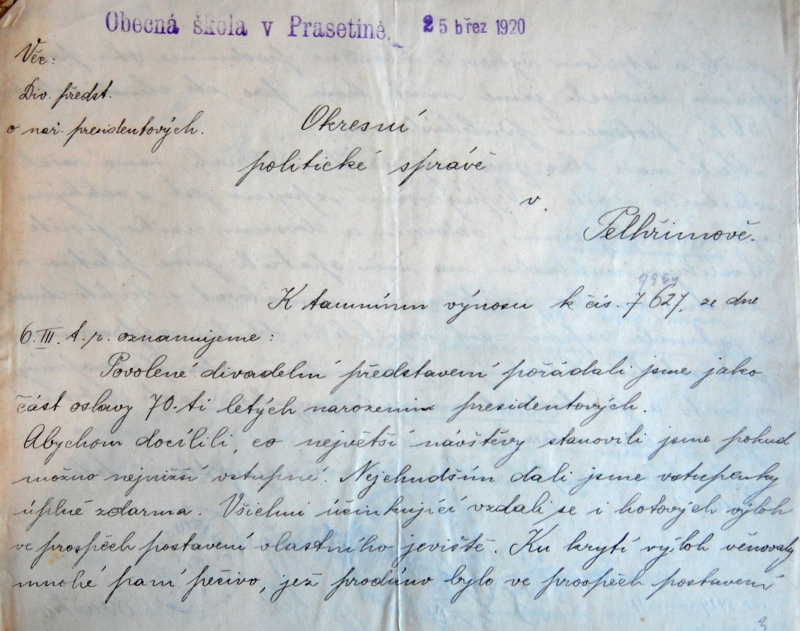 Obecná škola v Prasetíně.
25 břez 1920
Věc:
Div. předst.
o nar. presidentových.
Okresní
politické správě
v.
Pelhřimově.
K tamnímu výnosu k čís. 7627. ze dne
6. III. t. r. oznamujeme:
Povolené divadelní představení pořádali jsme jako
část oslavy 70-ti letých narozenin presidentových.
Abychom docílili, co největší návštěvy stanovili jsme pokud
možno nejnižší vstupné. Nejchudším dali jsme vstupenky
úplně zdarma. Všichni účinkující vzdali se i hotových výloh
ve prospěch postavení vlastního jeviště. Ku krytí výloh věnovaly
mnohé paní pečivo, jež prodáno bylo ve prospěch postavení